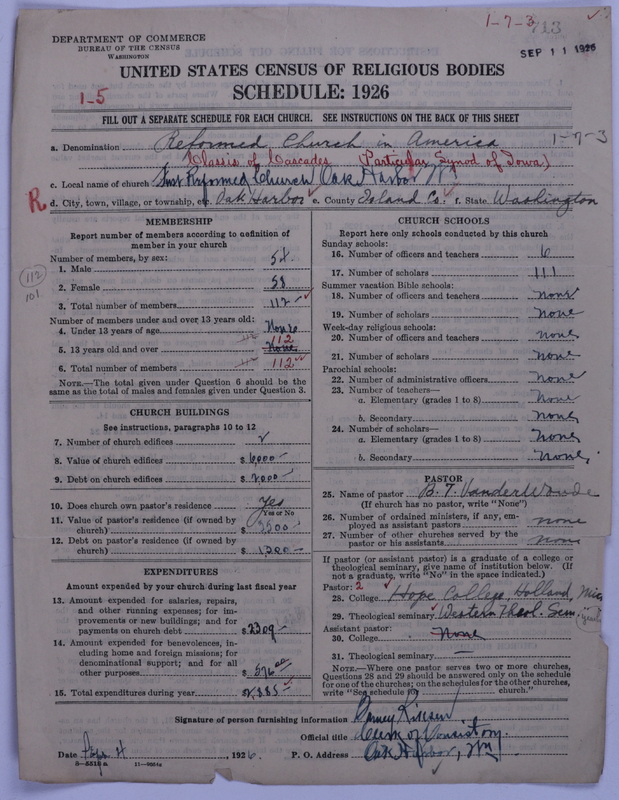 1-7-3
713
DEPARTMENT OF COMMERCE
BUREAU OF THE CENSUS
WASHINGTON
SEP 11 1926
UNITED STATES CENSUS OF RELIGIOUS BODIES
SCHEDULE: 1926
1-5
FILL OUT A SEPARATE SCHEDULE FOR EACH CHURCH. SEE INSTRUCTIONS ON THE BACK OF THIS SHEET
a. Denomination Reformed Church in America 1-7-3
Classis of Cascades (Particular Synod of Iowa)
c. Local name of church First Reformed Church Oak Harbor
R d. City, town, village, or township, etc. Oak Harbor e. County Island Co. f. State Washington
MEMBERSHIP
Report number of members according to definition of
member in your church
Number of members, by sex:
1. Male 54
2. Female 58
112
101
3. Total number of members 112
Number of members under and over 13 years old:
4. Under 13 years of age None
5. 13 years old and over 112 None
6. Total number of members 112
NOTE.—The total given under Question 6 should be the
same as the total of males and females given under Question 3.
CHURCH BUILDINGS
See instructions, paragraphs 10 to 12
7. Number of church edifices 2
8. Value of church edifices $ 6000
9. Debt on church edifices $ 2000
10. Does church own pastor's residence Yes
Yes or No
11. Value of pastor's residence (if owned by
church) $ 3500
12. Debt on pastor's residence (if owned by
church) $ 1300
EXPENDITURES
Amount expended by your church during last fiscal year
13. Amount expended for salaries, repairs,
and other running expenses; for im-
provements or new buildings; and for
payments on church debt $ 2309
14. Amount expended for benevolences, in-
cluding home and foreign missions; for
denominational support; and for all
other purposes $ 576
15. Total expenditures during year $ 2,885
CHURCH SCHOOLS
Report here only schools conducted by this church
Sunday schools:
16. Number of officers and teachers 6
17. Number of scholars 111
Summer vacation Bible schools:
18. Number of officers and teachers None
19. Number of scholars None
Week-day religious schools:
20. Number of officers and teachers None
21. Number of scholars None
Parochial schools:
22. Number of administrative officers None
23. Number of teachers—
a. Elementary (grades 1 to 8) None
b. Secondary None
24. Number of scholars—
a. Elementary (grades 1 to 8) None
b. Secondary None
PASTOR
25. Name of pastor B. T. VanderWoude
(If church has no pastor, write "None")
26. Number of ordained ministers, if any, em-
ployed as assistant pastors none
27. Number of other churches served by the
pastor or his assistants none
If pastor (or assistant pastor) is a graduate of a college or
theological seminary, give name of institution below. (If
not a graduate, write "No" in the space indicated.)
Pastor: 2
28. College Hope College, Holland, Mich
29. Theological seminary Western Theol. Sem.
Assistant pastor:
30. College None
31. Theological seminary —
NOTE.—Where one pastor serves two or more churches,
Questions 28 and 29 should be answered only on the schedule
for one of the churches; on the schedules for the other churches,
write "See schedule for church."
Signature of person furnishing information
Official title Clerk of Consistory
Date Sept 4, 1926. P. O. Address Oak Harbor, Wn
8—5518a 11—9054a